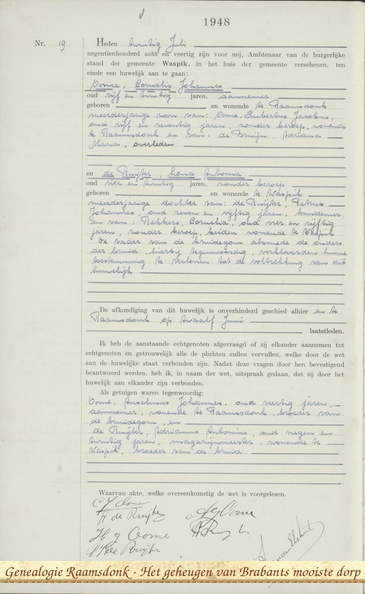 1948
Nr. 19
Heden twintig Juli
negentienhonderd acht en veertig zijn voor mij, Ambtenaar van de burgerlijke
stand der gemeente Waspik, in het huis der gemeente verschenen, ten
einde een huwelijk aan te gaan:
Oome, Cornelis Johannes
oud vijf en twintig jaren, aannemer
geboren en wonende te Raamsdonk
meerderjarige zoon van: Oome, Hubertus Jacobus,
oud vijf en zeventig jaren, zonder beroep, wonende
te Raamsdonk en van: de Bruijn, Adriana
Maria, overleden
en de Ruijter, Antonia
oud vier en twintig jaren, zonder beroep
geboren en wonende te Waspik
meerderjarige dochter van: de Ruijter, Petrus
Johannes, oud zeven en vijftig jaren,
en van: Cornelia, oud vier en vijftig
jaren, zonder beroep, beiden wonende te Waspik
De vader van de bruidegom alsmede de ouders
der bruid, hierbij tegenwoordig, verklaarden hunne
toestemming te verlenen tot de voltrekking van dit
huwelijk
De afkondiging van dit huwelijk is onverhinderd geschied alhier en te
Raamsdonk op twaalf Juni
laatstleden.
Ik heb de aanstaande echtgenoten afgevraagd of zij elkander aannemen tot
echtgenoten en getrouwelijk alle de plichten zullen vervullen, welke door de wet
aan de huwelijke staat verbonden zijn. Nadat deze vragen door hen bevestigend
beantwoord werden, heb ik, in naam der wet, uitspraak gedaan, dat zij door het
huwelijk aan elkander zijn verbonden.
Als getuigen waren tegenwoordig:
Oome, Johannes, oud veertig jaren,
aannemer, wonende te Raamsdonk, broeder van
de bruidegom, en
de Ruijter, Adrianus Antonius, oud negen en
twintig jaren, wonende te
Waspik, broeder van de bruid
Waarvan akte, welke overeenkomstig de wet is voorgelezen.
Oome
de Ruijter
H J Oome
de Ruijter
Genealogie Raamsdonk - Het geheugen van Brabants mooiste dorp